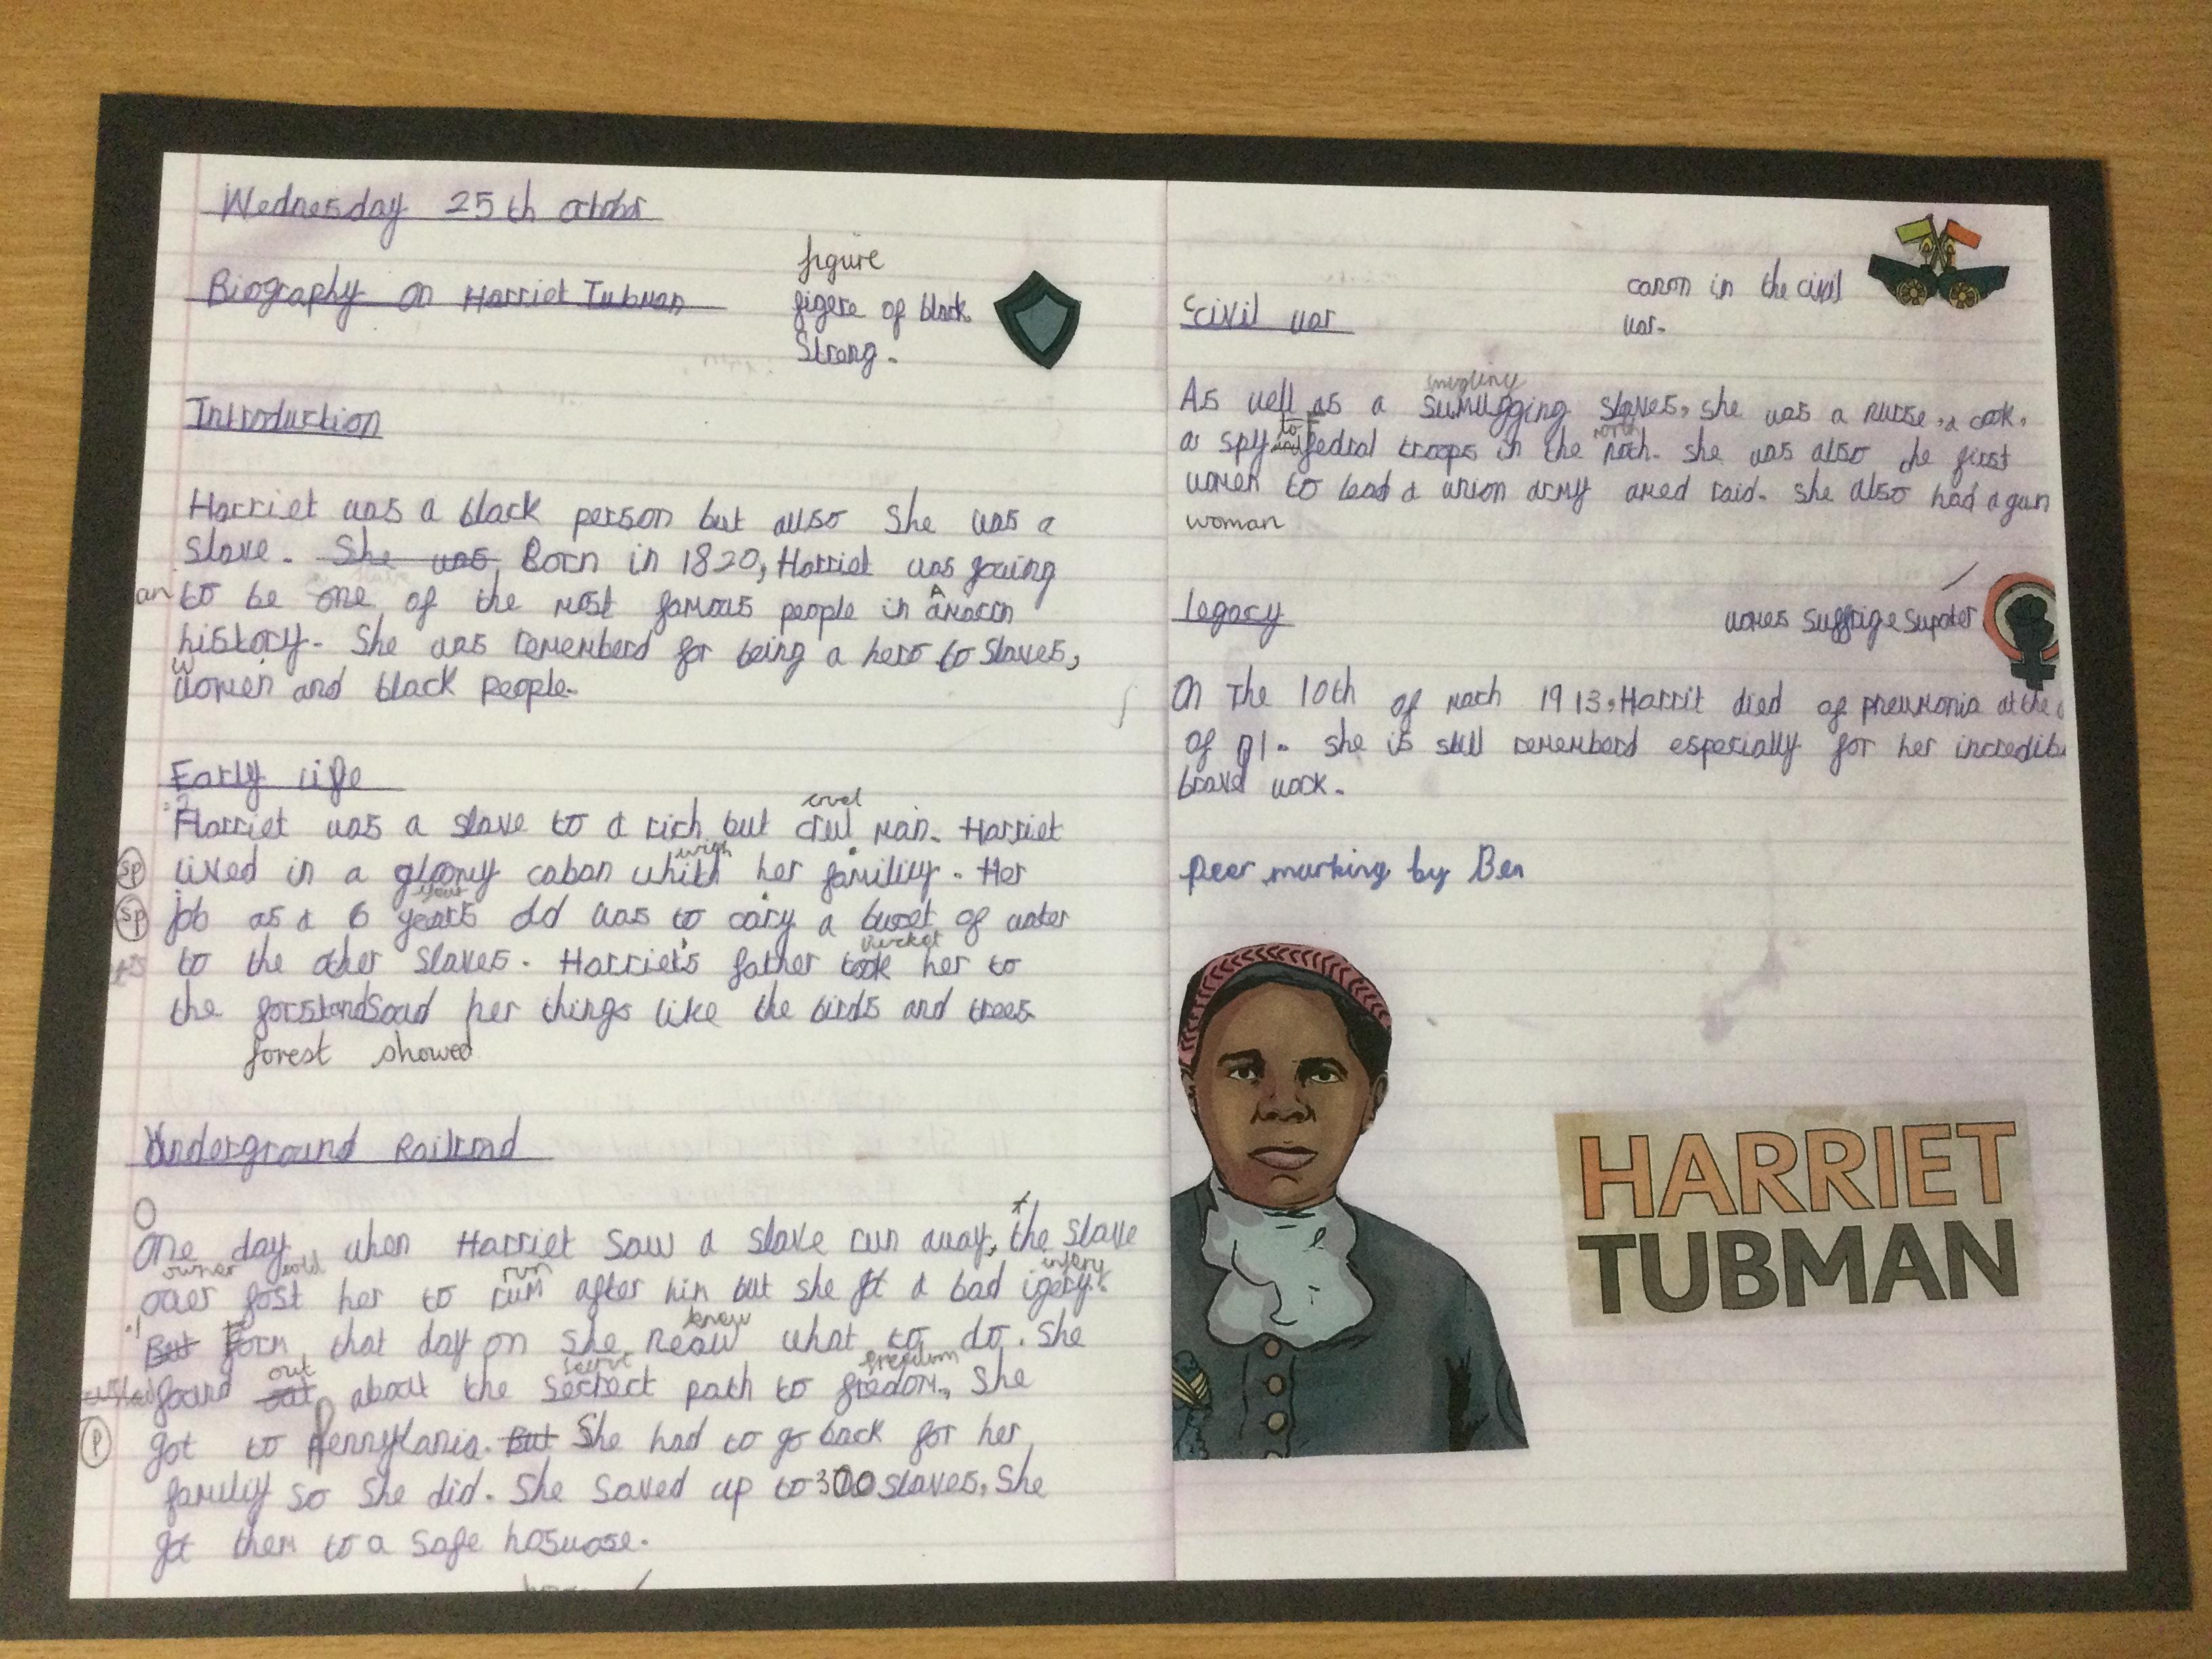 Wednesday 25th october
Biography on Harriet Tubman
figure
figere of black
Strong.
Introduction
Harriet was a black person but allso She was a
slave. She was Born in 1820, Harriet was gowing
an to be one of the most famous people in
history. She was rememberd for being a hero to slaves,
w
women and black people.
Early life
cruel
Harriet was a slave to a rich but man. Harriet
with
sp lived in a gloomy cabon whith her familiy. Her
year
sp job as a 6 years old was to cary a of water
bucket
to the other slaves. Harriet's father took her to
the her things like the birds and trees
forest showed
Underground Railroad
O t
One day when Harriet saw a slave run away, the slave
owner told run injery
her to rum after him but she got a bad igery.
knew
But Form that day on she neaw what to do. She
out freedom
found out about the secrect path to fredom, She
P got to Pennylania. But She had to go back for her
familiy so She did. She saved up to 300 slaves, She
got them to a safe hosuose.
Scivil war
canon in the civil
war.
smugling
As well as a sumugging slaves, she was a nurse, a cook,
to F north
a spy and fedral troops in the noth. she was also the first
women to lead a union army amed raid. she also had a gun
woman
Legacy
womes suffrige supoter
On The 10th of mach 1913, Harrit died of pneumonia at the
of 91. she is still rememberd especially for her incredib
brave work.
Peer marking by Ben
HARRIET
TUBMAN